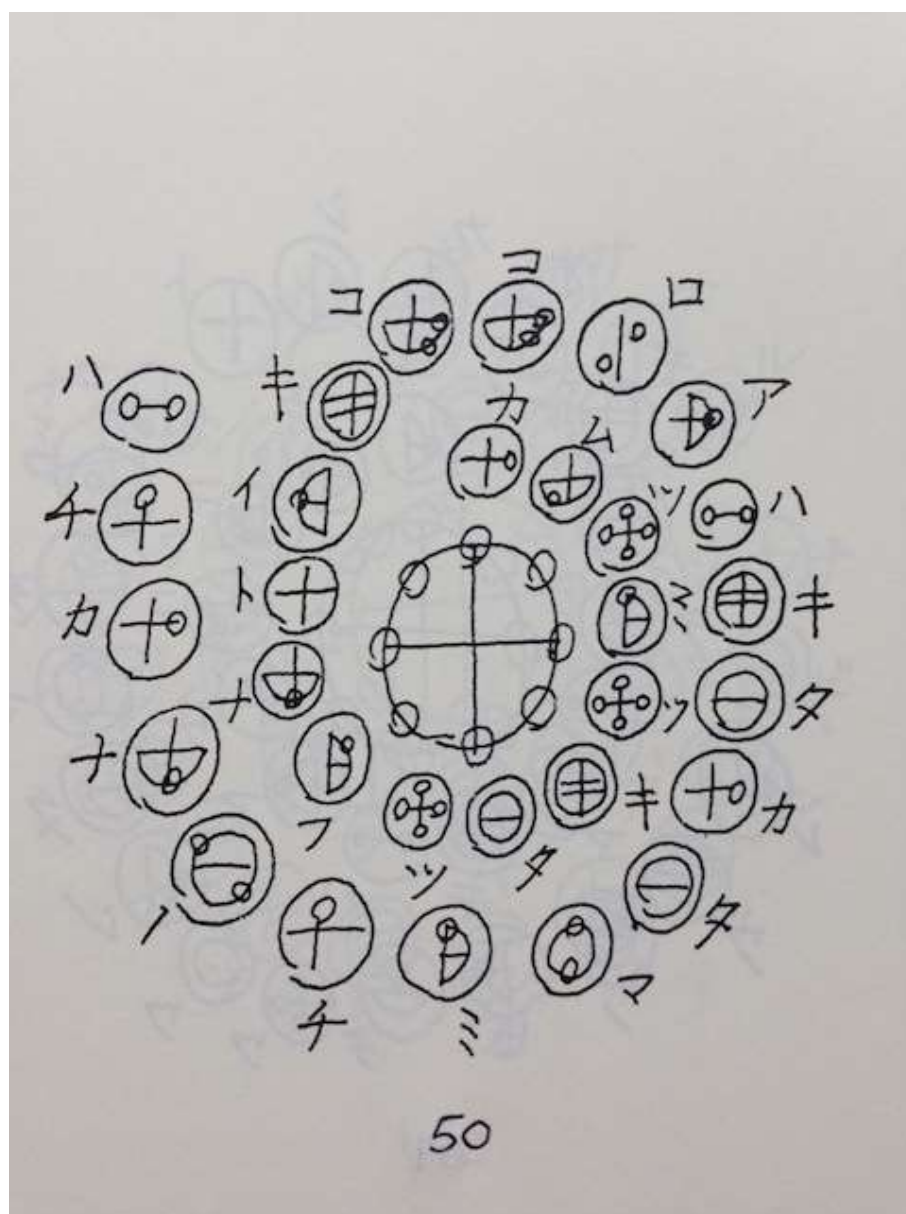 カムツミツキタツフナトイキココロアハキタカタマミチノナカチハ
50